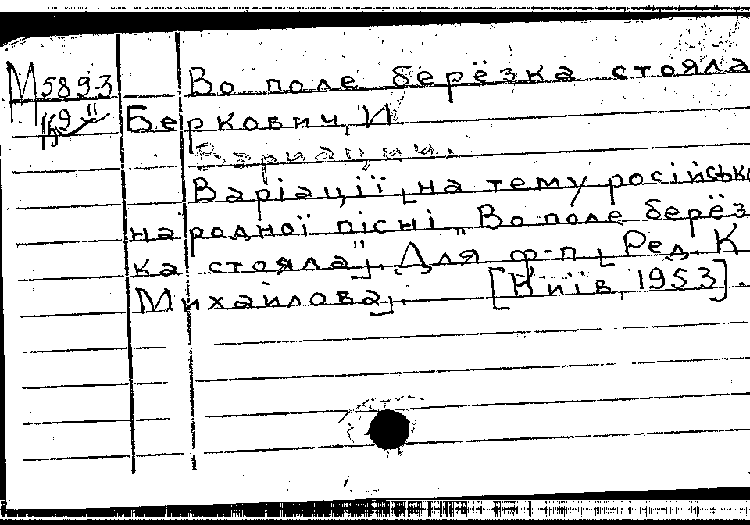 М5893 Во поле берёзка стояла
Беркович, И
Вариации.
Варіації [на тему російсько
народної пісні „Во поле берёз
ка стояла"]. Для ф-п [Ред. К
Михайлова]. [Київ, 1953].